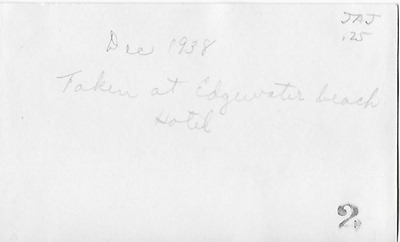 JAJ
.25
Dec 1938
Taken at Edgewater beach
Hotel
2